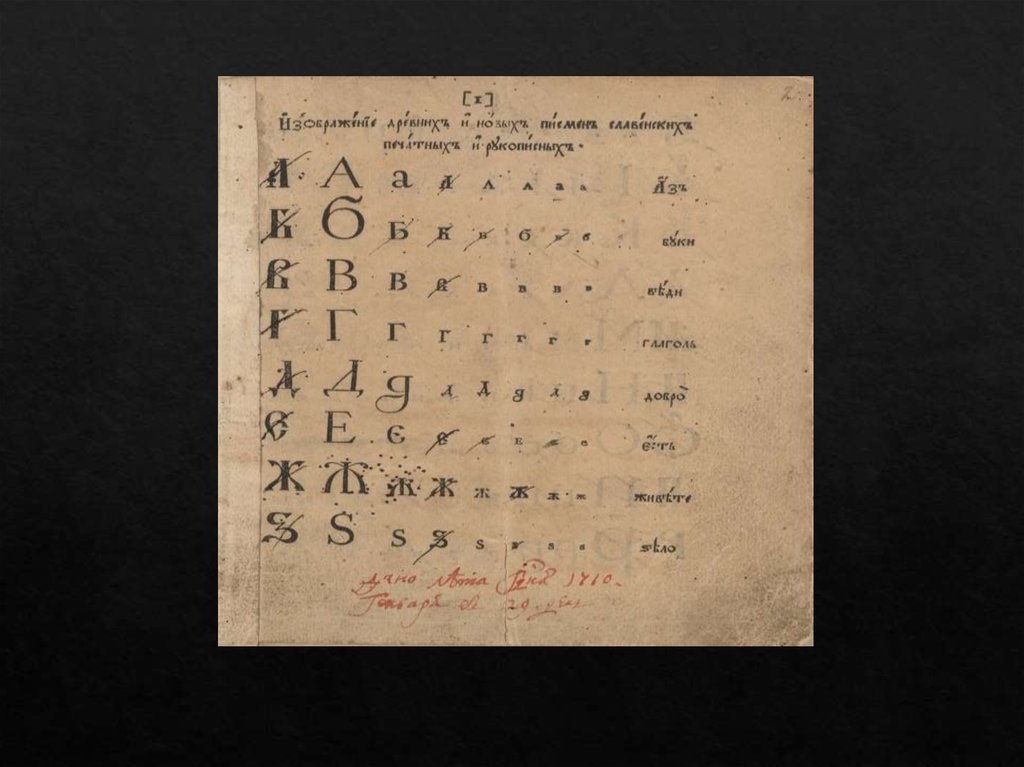 2
[1]
И҆зѡбраже́нїе дре́внихъ и҆ но́выхъ пи́сменъ славе́нскихъ
печа́тныхъ и҆ рꙋкопи́сныхъ.
А А а а а а а а А҆́зъ
Б Б Б Б Б б Б б бꙋ́ки
В В В В В В В В вѣ́ди
Г Г Г Г Г Г Г Г глаго́ль
Д Д д д Д д д д добро̀
Є Е є є є Е є є є҆́сть
Ж Ж Ж Ж Ж Ж Ж Ж живѣ́те
Ѕ Ѕ Ѕ Ѕ Ѕ Ѕ Ѕ Ѕ ѕѣло̀
дано лѣта 1710.
Генваря въ 29. день